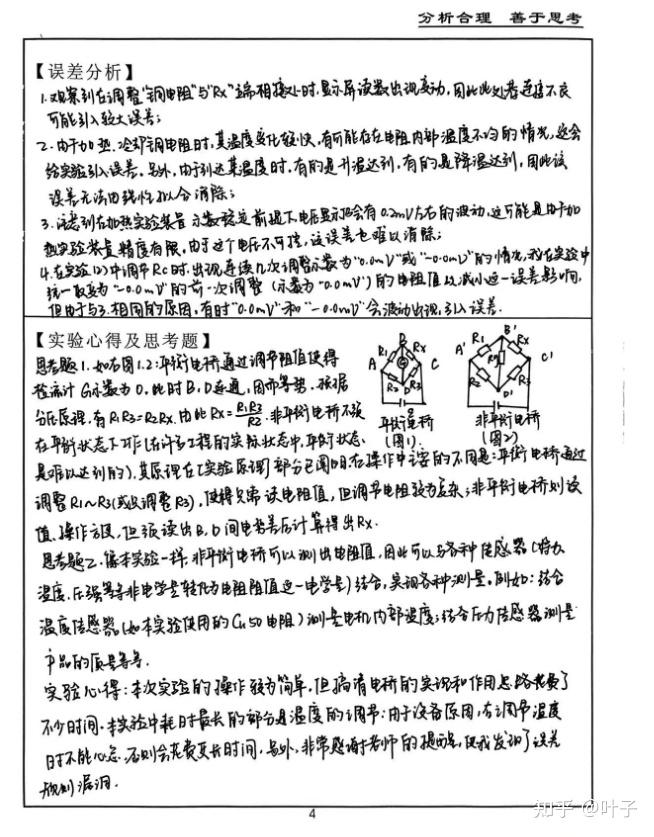 分析合理 善于思考
【误差分析】
1. 观察到在调整"铜电阻"与"Rx"端相接处时,显示屏读数出现变动,因此此处若连接不良
可能引入较大误差;
2. 由于加热、冷却铜电阻时,其温度变化较快,有可能存在电阻内部温度不均的情况,这会
给实验引入误差。另外,由于到达某温度时,有的是升温达到,有的是降温达到,因此该
误差无法由线性拟合消除;
3. 注意到在加热实验装置示数稳定前提下电压显示仍会有0.2mV左右的波动,这可能是由于加
热实验装置精度有限,由于这个电压不可控,该误差也难以消除;
4. 在实验(2)中调节Rc时,出现连续几次调整示数为"0.0mV"或"-0.0mV"的情况,我在实验中
统一取变为"-0.0mV"的前一次调整(示数为"0.0mV")的电阻值以减小这一误差影响,
但由于与3.相同的原因,有时"0.0mV"和"-0.0mV"会波动出现,引入误差.
【实验心得及思考题】
思考题1. 如右图1.2:平衡电桥通过调节阻值使得
检流计G示数为0,此时B、D连通,因而等势.根据
分压原理,有R1R3=R2Rx.由此Rx=R1R3/R2.非平衡电桥不须
在平衡状态下工作(在许多工程的实际状态中,平衡状态
是难以达到的).其原理在[实验原理]部分已阐明.在操作中主要的不同是:平衡电桥通过
调整R1~R3(或仅调整R3),使得只需读电阻值,但调节电阻较为复杂;非平衡电桥则读
值、操作方便,但须读出B、D间电势差后计算得出Rx.
A B C D R1 Rx R2 R3 G E
平衡电桥
(图1)
A' B' C' D' R1 Rx Rg R2 R3
非平衡电桥
(图2)
思考题2. 像本实验一样,非平衡电桥可以测出电阻值,因此可以与各种传感器(将如
温度、压强等等非电学量转化为电阻阻值这一电学量)结合,实现各种测量.例如:结合
温度传感器(如本实验使用的Cu50电阻)测量电机内部温度;结合压力传感器测量
产品的质量等等.
实验心得:本次实验的操作较为简单,但搞清电桥的实现和作用思路花费了
不少时间.本实验中耗时最长的部分是温度的调节:由于设备原因,在调节温度
时不能心急,否则会花费更长时间.另外,非常感谢老师的提醒,使我发现了误差
规则漏洞.
4
知乎 @叶子